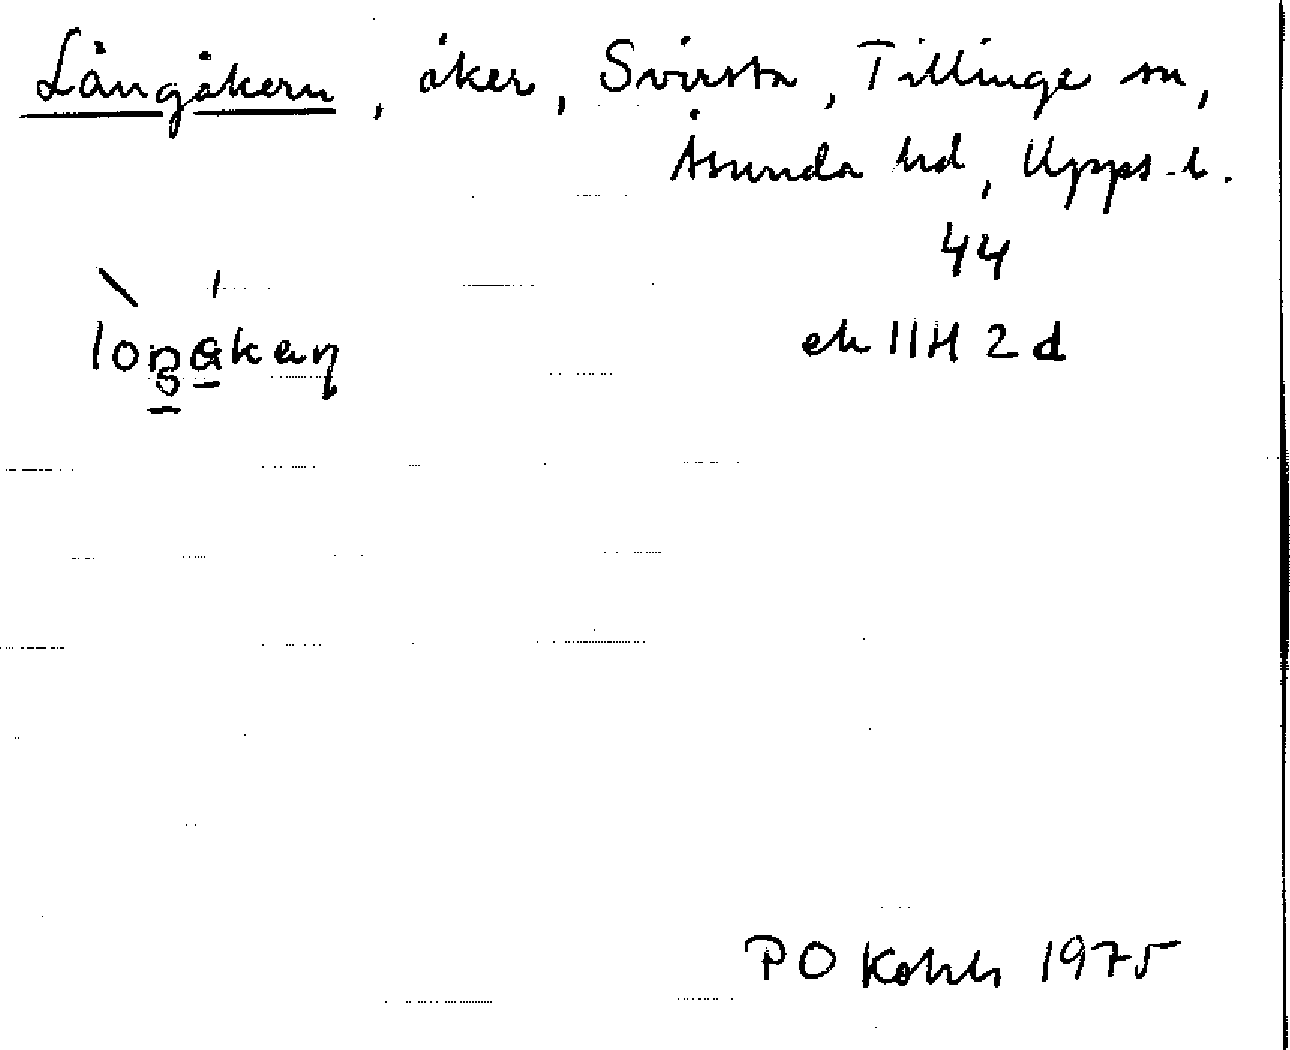 Långåkern, åker, Svirsta, Tillinge sn,
Åsunda hd, Upps. l.
44
ek 11H 2d
PO Kohls 1975